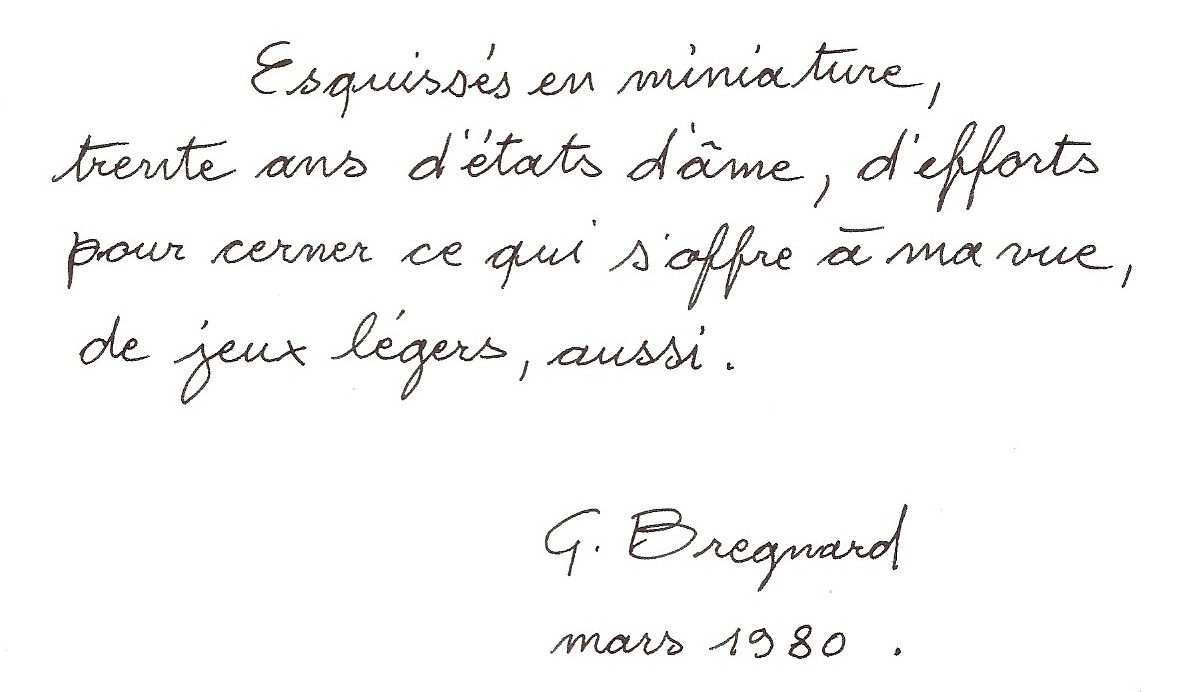 Esquissés en miniature,
trente ans d'états d'âme, d'efforts
pour cerner ce qui s'offre à ma vue,
de jeux légers, aussi.
G. Bregnard
mars 1980.